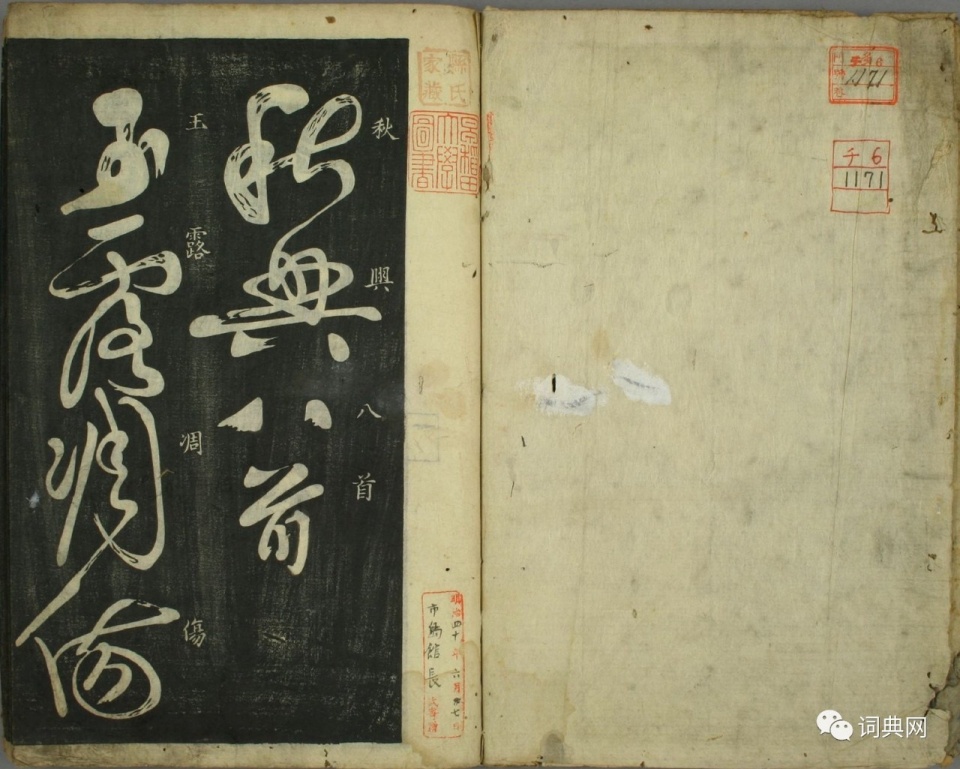 チ 6
1171
1171
氏
家藏
早稻田
大學
圖書
明治四十年六月廿七日
市島館長
秋興八首
秋興八首
玉露凋傷
玉露凋傷
词典网